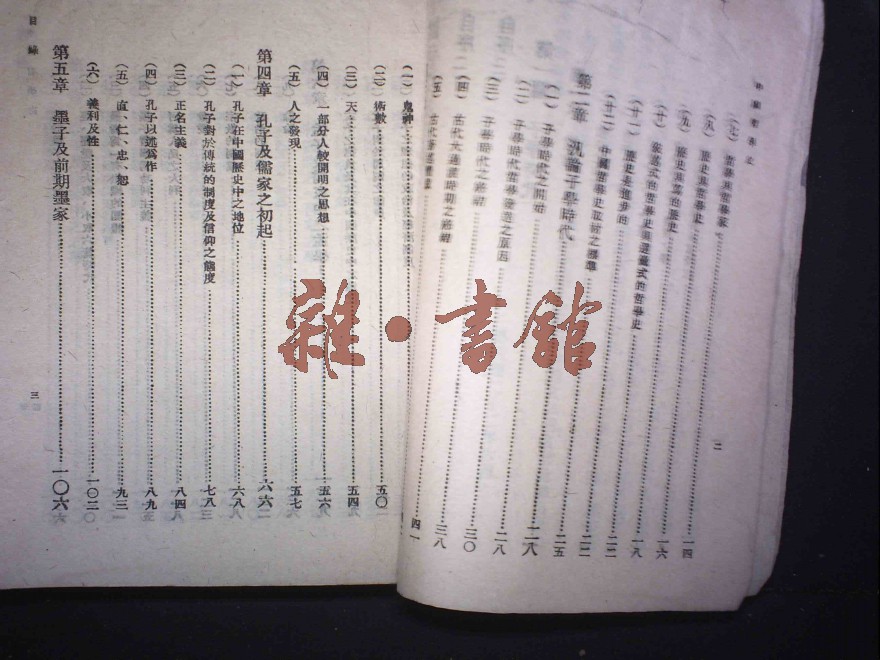 中國哲學史
二
(七) 哲學與哲學家……一四
(八) 歷史與哲學史……一六
(九) 歷史與寫的歷史……一八
(十) 叙述式的哲學史與選錄式的哲學史……二二
(十一) 歷史是進步的……二二
(十二) 中國哲學史取材之標準……二五
第二章 汎論子學時代
(一) 子學時代之開始……二八
(二) 子學時代哲學發達之原因……三〇
(三) 子學時代之終結……三八
(四) 古代大過渡時期之終結……四一
(五) 古代著述體裁
(一) 鬼神
(二) 術數……五〇
(三) 天……五四
(四) 一部分人較開明之思想……五六
(五) 人之發現……五七
第四章 孔子及儒家之初起……六六
(一) 孔子在中國歷史中之地位……六八
(二) 孔子對於傳統的制度及信仰之態度……七八
(三) 正名主義……八四
(四) 孔子以述爲作……八九
(五) 直、仁、忠、恕……九三
(六) 義利及性……一〇二
第五章 墨子及前期墨家……一〇六
目錄
三
雜·書館